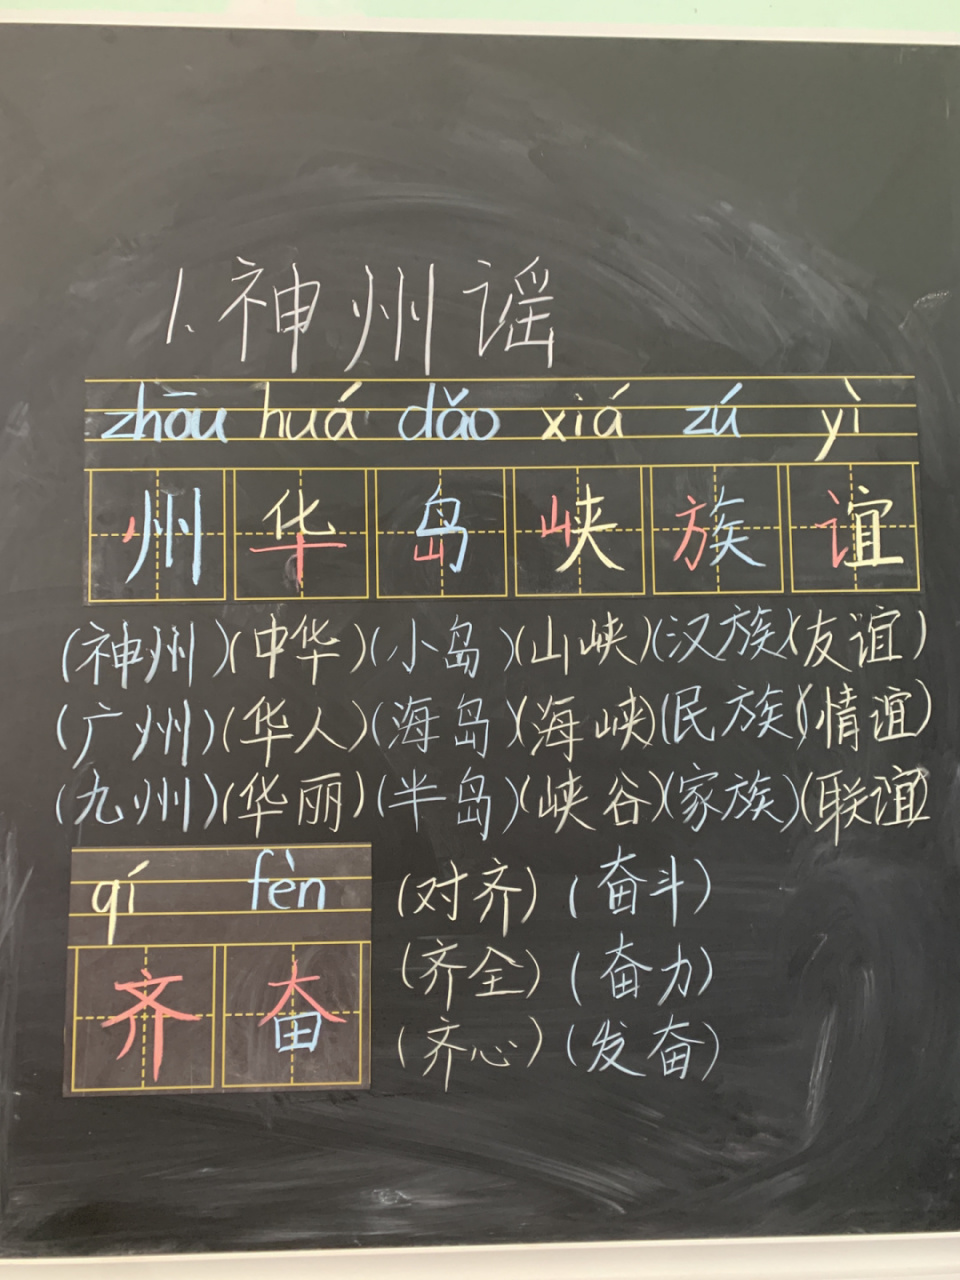 1.神州谣
zhōu huá dǎo xiá zú yì
州华岛峡族谊
(神州)(中华)(小岛)(山峡)(汉族)(友谊)
(广州)(华人)(海岛)(海峡)(民族)(情谊)
(九州)(华丽)(半岛)(峡谷)(家族)(联谊)
qí fèn
齐奋
(对齐)(奋斗)
(齐全)(奋力)
(齐心)(发奋)